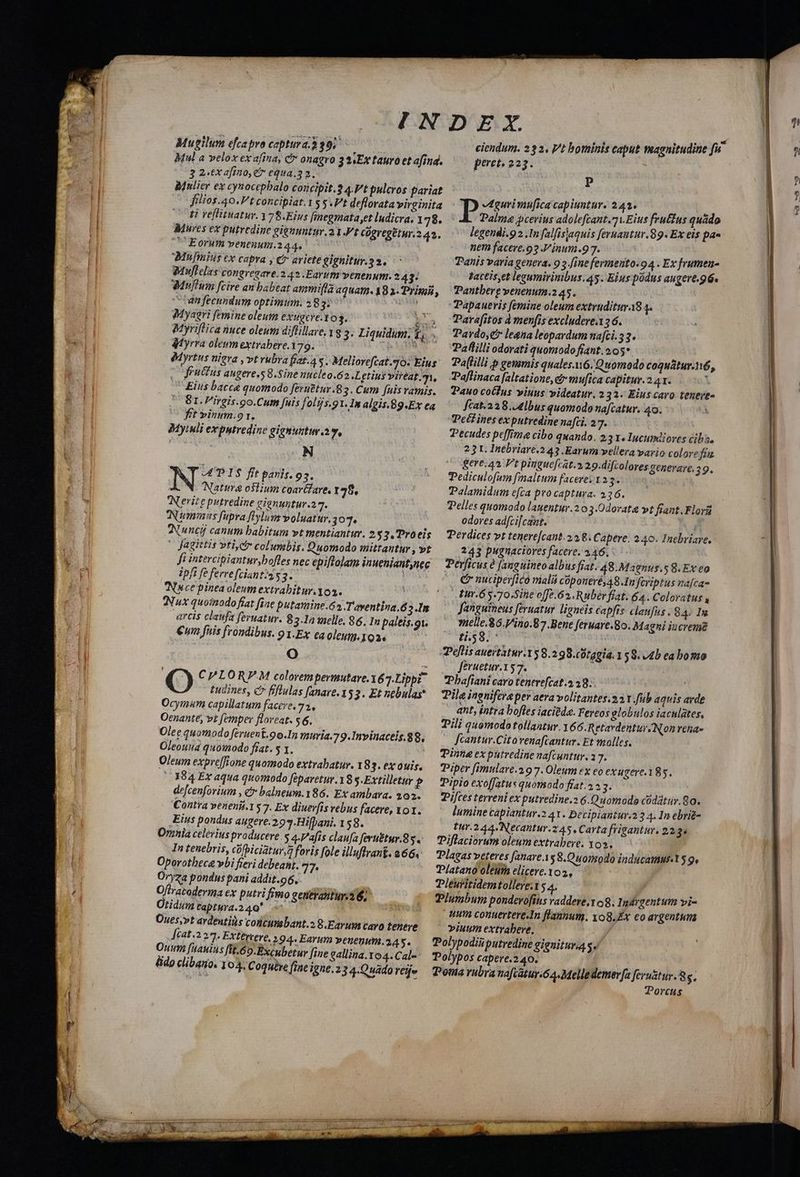 INDEX.
Mugilum esca pro captura.239.
Mul a velox ex asina, & onagro 32.Ex tauro et asina.
32.ex asino, & equa.32.
Mulier ex cynocephalo concipit.34.Vt pulcros pariat
filios.40.Vt concipiat.155.Vt deflorata virginita
ti restituatur.178.Eius smegmata,et ludicra. 178.
Mures ex putredine gignuntur.21.Vt cõgregẽtur.242.
Eorum venenum.244.
Musmius ex capra, & ariete gignitur.32.
Mustelas congregare.242.Earum venenum. 243.
Mustum scire an habeat ammistã aquam.182.Primũ,
an secundum optimum. 283.
Myagri semine oleum exugere.103.
Myristica nuce oleum distillare.183. Liquidum.
Myrra oleum extrahere.179.
Myrtus nigra, vt rubra fiat.45. Meliorescat.70. Eius
fructus augere.58.Sine nucleo.62.Letius vireat.71.
Eius baccæ quomodo seruẽtur.83. Cum suis ramis.
81.Virgis.90.Cum suis folijs.91.In algis.89.Ex ea
fit vinum.91.
Mytuli ex putredine gignuntur.27.
N
NAPIS fit panis.93.
Naturæ ostium coarctare.178.
Nerite putredine gignuntur.27.
Nummus supra stylum voluatur.307.
Nuncij canum habitum vt mentiantur. 253.Pro eis
sagittis vti,& columbis. Quomodo mittantur, vt
si intercipiantur,hostes nec epistolam inueniant,nec
ipsi se ferre sciant.253.
Nuce pinea oleum extrahitur.102.
Nux quomodo fiat sine putamine.62.Tarentina.63.In
arcis clausa seruatur. 83.In melle. 86. In paleis.91.
Cum suis frondibus. 91.Ex ea oleum.102.
O
OCVLORVM colorem permutare.167.Lippi
tudines, & fistulas sanare.153. Et nebulas
Ocymum capillatum facere.72.
Oenante, vt semper floreat. 56.
Olee quomodo seruent.90.In muria.79.Inuinaceis.88.
Oleouua quomodo fiat. 51.
Oleum expressione quomodo extrahatur. 183. ex ouis.
184.Ex aqua quomodo separetur.185.Extilletur p
descensorium, & balneum.186. Ex ambara. 202.
Contra venena.157. Ex diuersis rebus facere, 101.
Eius pondus augere.297.Hispani. 158.
Omnia celerius producere 54.Vasis clausa seruẽtur.85.
In tenebris, cõspiciãtur,q̃ foris sole illustrant. 266.
Oporothecæ vbi fieri debeant. 77.
Oryza pondus pani addit.96.
Ostracoderma ex putri fimo generantur.26.
Otidum captura.240.
Oues,vt ardentiùs concumbant.28.Earum caro tenere
scat.227. Exterere.294. Earum venenum.245.
Ouum suauius fit.69.Excubetur sine gallina.104.Cal-
lido clibano. 104. Coquere sine igne.234.Quãdo reije
ciendum. 232. Vt hominis caput magnitudine su
peret. 223.
P
PAguri musica capiuntur. 242.
Palmæ pcerius adolescant.71.Eius fructus quãdo
legendi.92.In falsis aquis seruantur.89. Ex eis pa=
nem facere.92.Vinum.97.
Panis varia genera. 93.sine fermento.94. Ex frumen=
taceis,et leguminibus.45. Eius põdus augere.96.
Pantheræ venenum.245.
Papaueris semine oleum extruditur.184.
Parasitos à mensis excludere.136.
Pardo,& leæna leopardum nasci.33.
Pastilli odorati quomodo fiant.205.
Pastilli p gemmis quales.116.Quomodo coquãtur.116.
Pastinaca saltatione,& musica capitur.241.
Pauo coctus viuus videatur. 232. Eius caro tenere=
scat.228.Albus quomodo nascatur. 40.
Pectines ex putredine nasci. 27.
Pecudes pessimæ cibo quando. 231. Iucundiores cibo.
231. Inebriare.243.Earum vellera vario colore fin
gere.42.Vt pinguescãt.229.discolores generare.39.
Pediculosum smaltum facere. 123.
Palamidum esca pro captura. 236.
Pelles quomodo lauentur.203.Odoratæ vt fiant.Florũ
odores adsciscant.
Perdices vt tenerescant.228.Capere. 240. Inebriare.
243 pugnaciores facere. 246.
Persicus è sanguineo albus fiat. 48.Magnus.58.Ex eo
& nucipersico malũ cõponere.48.Inscriptus nasca=
tur.65.70.Sine osse.62.Ruber fiat. 64. Coloratus,
sanguineus seruatur ligneis capsis clausus.84. In
melle.86.Vino.87.Bene seruare.80. Magni incremẽ
ti.58.
Pestis auertatur.158.298.cõtagia.158. Ab ea homo
seruetur.157.
Phasiani caro tenerescat.228.
Pilæ ingnifera per aera volitantes.221.sub aquis arde
ant, intra hostes iaciẽdæ. Fereos globulos iaculãtes.
Pili quomodo tollantur. 166.Retardentur.Non rena=
scantur.Cito renascantur. Et molles.
Pinnæ ex putredine nascuntur.27.
Piper simulare.297.Oleum ex eo exugere.185.
Pipio exossatus quomodo fiat.223.
Pisces terreni ex putredine.26.Quomodo cõdãtur.80.
lumine capiantur.241. Decipiantur.234. In ebriẽ=
tur.244.Necantur.245.Carta frigantur. 223.
Pistaciorum oleum extrahere. 102.
Plagas veteres sanare.158.Quomodo inducamus.159.
Platano oleum elicere.102.
Pleuritidem tollere.154.
Plumbum ponderosius raddere.108. Inargentum vi=
uum conuertere.In stannum. 108.Ex eo argentum
viuum extrahere.
Polypodij putredine gignitur.45.
Polypos capere.240.
Poma rubra nascãtur.64.Melle demersa seruãtur. 85.
Porcus